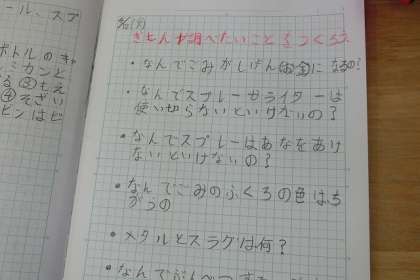 ール、スプ
ボトルのキャ
ミカンと
る③もえ
④そざい
ビンはビ
9/6(月)
ぎもんや調べたいことをつくろう
・なんでごみがしげん(お金)になるの?
・なんでスプレーやライターは
使い切らないといけないの?
・なんでスプレーはあなをあけ
ないといけないの?
・なんでごみのふくろの色はち
がうの
・メタルとスラグは何?
・なんでぶんべつする